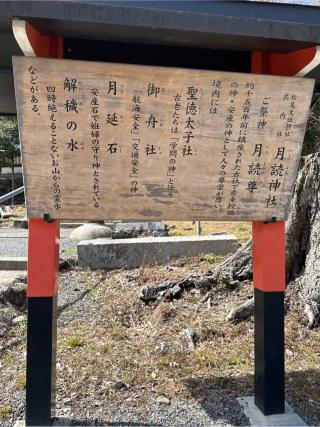 松尾大社摂社
式内社
月読神社
ご祭神 月読尊
約千五百年前に鎮座された古社で古来授福
の神・安産の神として人々の尊崇が厚い。
境内には
聖徳太子社
古老たちは「学問の神」とほう
御舟社
「航海安全」「交通安全」の神
月延石
安産石で妊婦の守り神とされている
解穢の水
四時絶えることないお山からの霊水
などがある。